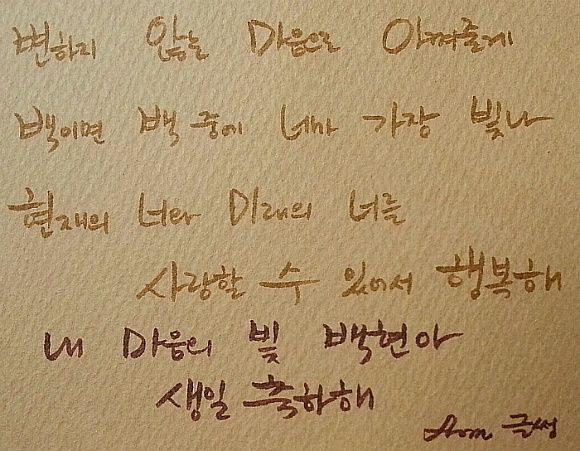 변하지 않는 마음으로 아껴줄게
백이면 백 중에 네가 가장 빛나
현재의 너와 미래의 너를
사랑할 수 있어서 행복해
내 마음의 빛 백현아
생일 축하해
from 글씽